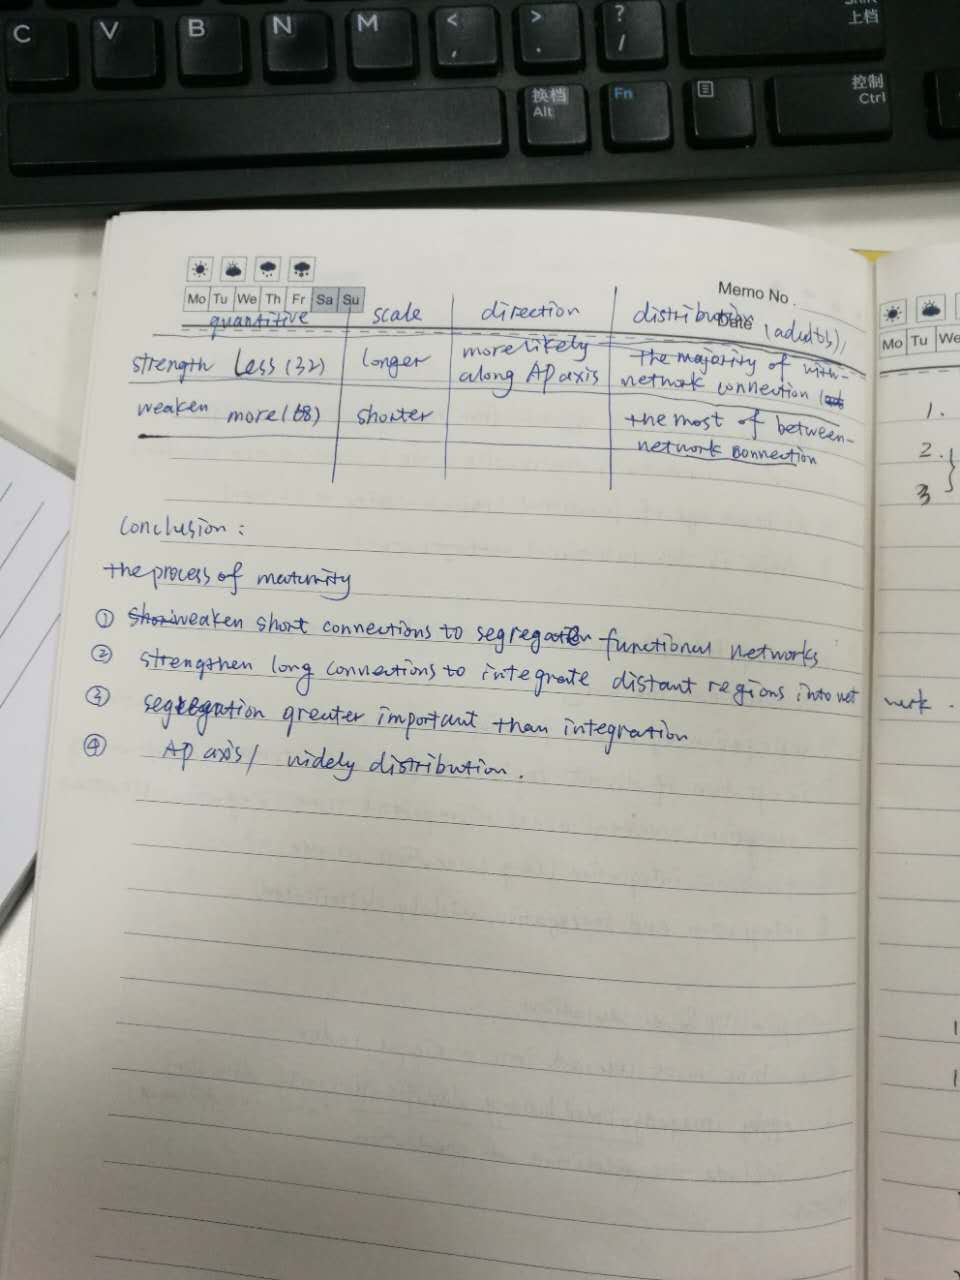 C V B N M < , > . ? / 上档
换档 Alt Fn 控制 Ctrl
Memo No .
Mo Tu We Th Fr Sa Su
Date
quantitive scale direction distribution (adults)
strength Less (32) longer more likely along AP axis The majority of with-network connection
weaken more (68) shorter the most of between-network connection
Conclusion :
the process of maturity
① weaken short connections to segregation functional networks
② strengthen long connections to integrate distant regions into net werk .
③ segregation greater important than integration
④ AP axis / widely distribution .
Mo Tu We
1.
2.
3